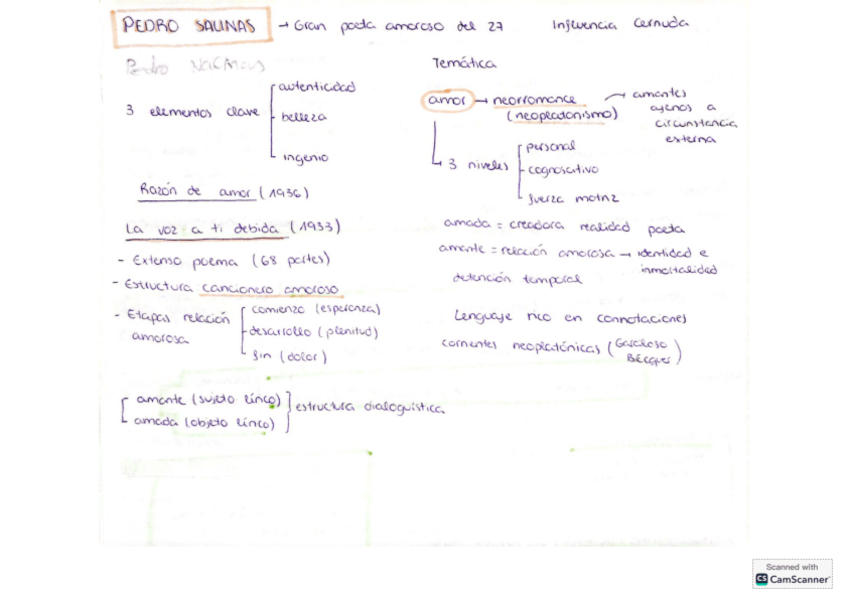 PEDRO SALINAS → Gran poeta amoroso del 27 Influencia Cernuda
Pedro
3 elementos clave
autenticidad
belleza
ingenio
Razón de amor (1936)
La voz a ti debida (1933)
- Extenso poema (68 partes)
- Estructura cancionero amoroso
- Etapas relación amorosa
comienzo (esperanza)
desarrollo (plenitud)
fin (dolor)
amante (sujeto lírico)
amada (objeto lírico)
estructura dialoguística
Temática
amor → neorromance
(neoplatonismo)
amantes
ajenos a
circunstancia
externa
3 niveles
personal
cognoscitivo
fuerza motriz
amada = creadora realidad poeta
amante = relación amorosa → identidad e
inmortalidad
detención temporal
Lenguaje rico en connotaciones
corrientes neoplatónicas (Garcilaso
Bécquer)
Scanned with
CS CamScanner